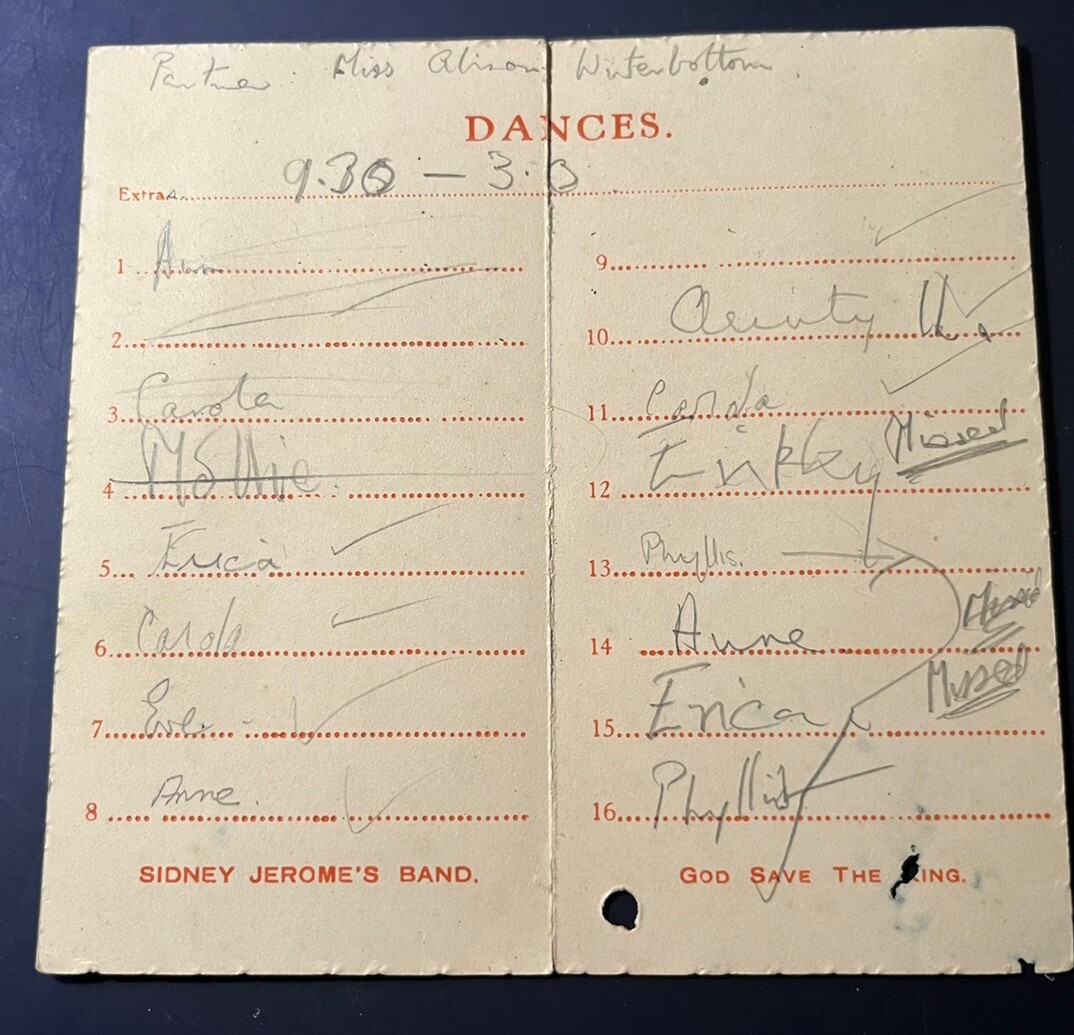 Partner: Miss Alison Winterbottom.
DANCES.
Extras. 9.30 – 3.0
1
2
3 Carola
4 Mollie
5 Erica
6 Carola
7 Eve
8 Anne.
SIDNEY JEROME'S BAND.
9
10 Aunty U.
11 Carola
12 Missed
13 Phyllis.
14 Anne Missed
15 Erica Missed
16 Phyllis
GOD SAVE THE KING.